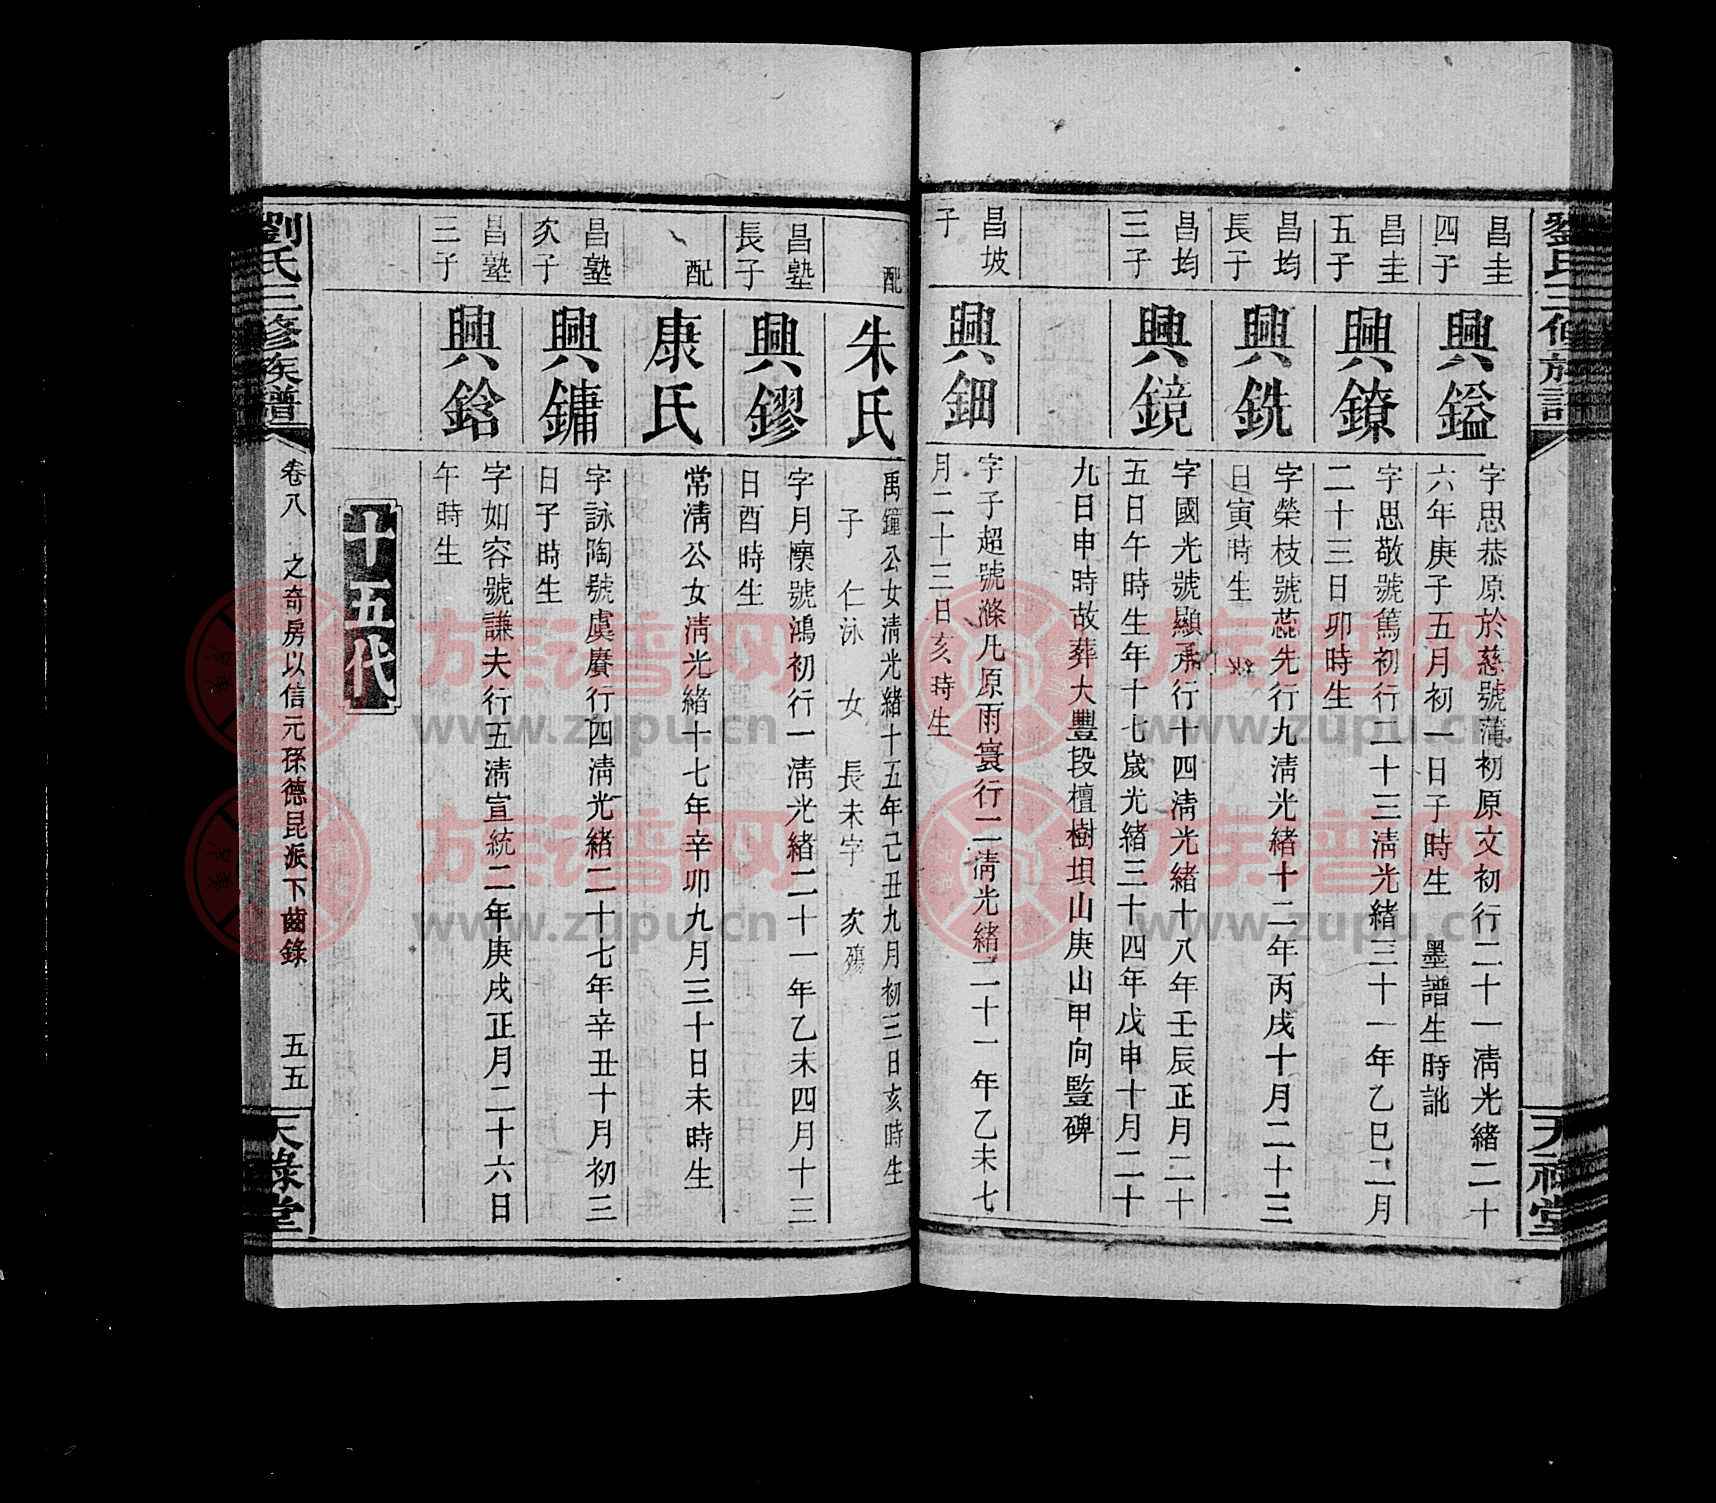 天祿堂
昌圭
四子
興鎰
字思恭原於慈號蒲初原文初行二十一淸光緒二十
六年庚子五月初一日子時生 墨譜生時訛
昌圭
五子
興鐐
字思敬號篤初行二十三淸光緒三十一年乙巳二月
二十三日卯時生
昌均
長子
興銑
字榮枝號蕊先行九淸光緒十二年丙戌十月二十三
日寅時生
昌均
三子
興鏡
字國光號顯承行十四淸光緒十八年壬辰正月二十
五日午時生年十七歲光緒三十四年戊申十月二十
九日申時故葬大豐段檀樹垻山庚山甲向豎碑
昌坡
子
興鈿
字子超號滌凡原雨寰行二淸光緒二十一年乙未七
月二十三日亥時生
配
朱氏
禹鐘公女淸光緒十五年己丑九月初三日亥時生
子 仁泳 女 長未字 次殤
昌塾
長子
興鏐
字月懷號鴻初行一淸光緒二十一年乙未四月十三
日酉時生
配
康氏
常淸公女淸光緒十七年辛卯九月三十日未時生
昌塾
次子
興鏞
字詠陶號虞賡行四淸光緒二十七年辛丑十月初三
日子時生
昌塾
三子
興鋡
字如容號謙夫行五淸宣統二年庚戌正月二十六日
午時生
十五代
劉氏三修族譜
卷八 之奇房以信元孫德昆派下齒錄 五五
天祿堂
族谱网
www.zupu.cn
族谱网
www.zupu.cn
族谱网
www.zupu.cn
族谱网
www.zupu.cn